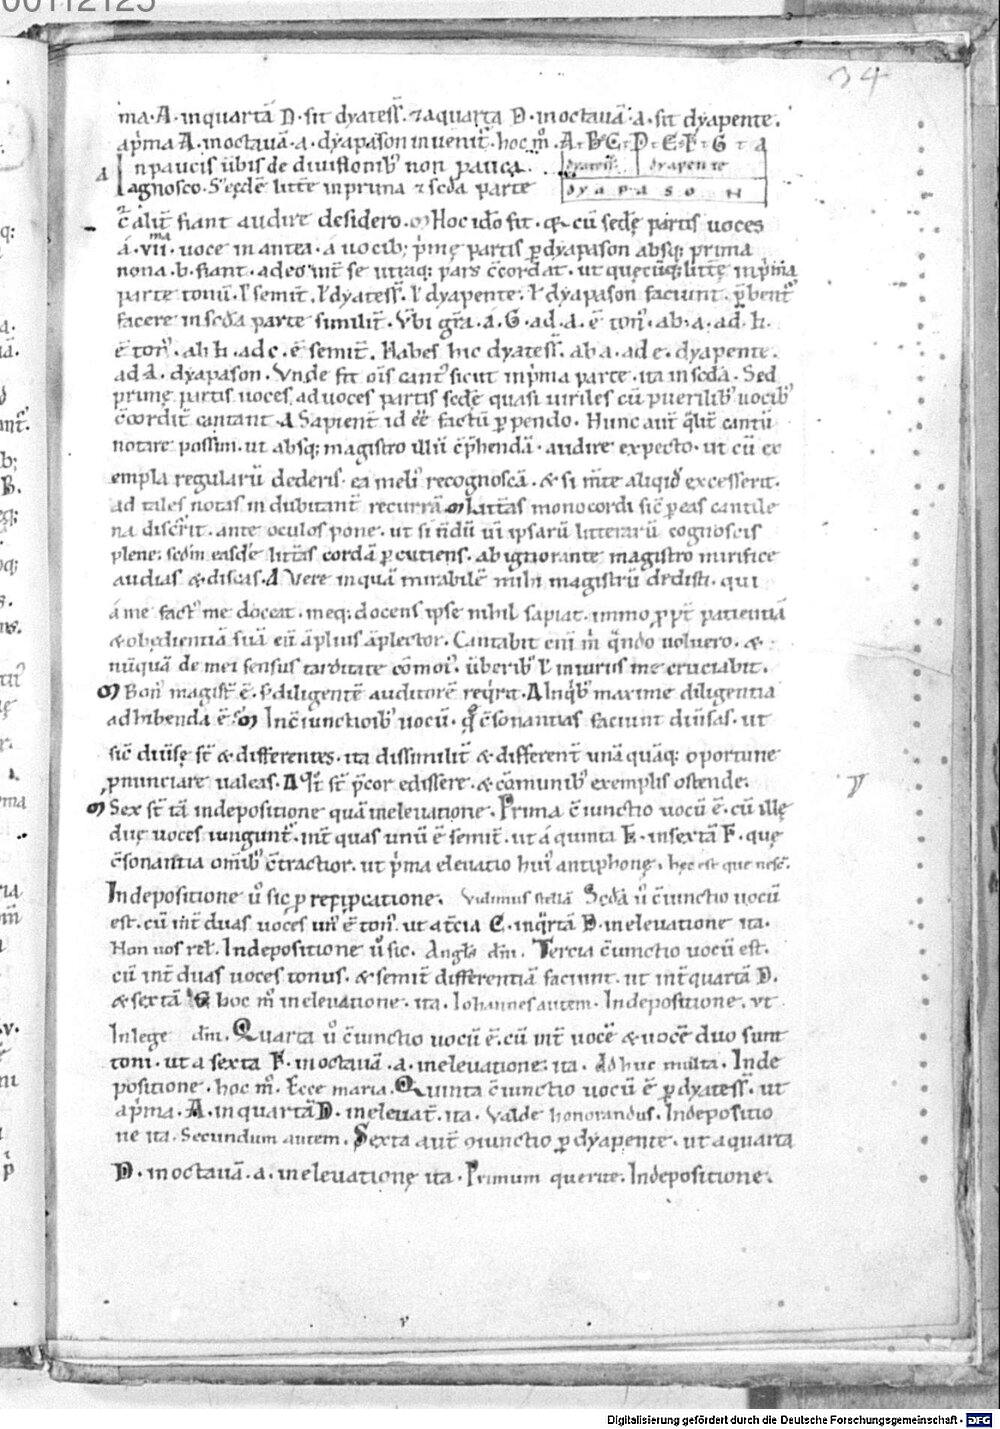 00112125
34
ma · A · in quartā D · sit dyatess̄ · ⁊ a quarta D · in octauā · a · sit dyapente ·
a pͥma A · in octauā · a · dyapason inuenit᷑ · hoc mͦ · A · B · C · D · E · F · G · a
A In paucis ūbis de diuisionibꝰ non pauca dyatess̄ dyapente
agnosco · Sꝫ eędē littę in prima ⁊ scđa parte DYAPASON
c̄ alit᷑ fiant audire desidero · M Hoc idō fit · qͣ cū scđę partis uoces
á · vii · ma uoce in antea · á uocibꝫ p̄mę partis ꝑ dyapason absqꝫ prima
nona · b · fiant · adeo int᷑ se utraqꝫ pars c̄cordat · ut quęcūqꝫ littę in pͥma
parte tonū · ł semit̄ · ł dyatess̄ · ł dyapente · ł dyapason faciunt · ꝑhent᷑
facere in scđa parte similit᷑ · Vbi gr̄a · á · G · ad · a · ē tonꝰ · ab · a · ad · h ·
ē tonꝰ · ab h · ad c · ē semit̄ · Habes hic dyatess̄ · ab a · ad e · dyapente ·
ad · a · dyapason · Vnde fit ois̄ cantꝰ sicut in pͥma parte · ita in scđa · Sed
primę partis uoces ad uoces partis scđę quasi uiriles cū puerilibꝰ uocibꝰ
c̄cordit᷑ cantant · A Sapient᷑ id eē factū ꝑpendo · Hunc aut̄ qͣlit᷑ cantū
notare possim · ut absqꝫ magistro illū c̄p̄hendā · audire expecto · ut cū ex
empla regularū dederis · ea meliꝰ recognoscā · & si m̄te aliqͥd excesserit ·
ad tales notas indubitant᷑ recurrā · M Litt̄as monocordi sic̄ ꝑ eas cantile
na discr̄rit · ante oculos pone · ut si n̄dū uim ipsarū litterarū cognoscis
plene · scđm easdē litt̄as cordā ꝑcutiens · ab ignorante magistro mirifice
audias & discas · A Vere inquā mirabilē mihi magistrū dedisti · qui
á me factꝰ me doceat · meqꝫ docens ipse nihil sapiat · immo ꝓpt᷑ patientiā
& obędientiā suā eū āplius āplector · Cantabit eni m̄ qn̄do uoluero · &
nūquā de mei sensus tarditate cōmotꝰ · ūberibꝰ ł iniuriis me cruciabit ·
M Bonꝰ magist᷑ ē · sꝫ diligentē auditorē reqͥrit · A In qͥbꝰ maxime diligentia
adhibenda ē · M In c̄iunctionibꝰ uocū · q̄ c̄sonantias faciunt diūsas · ut
sic̄ diūsę st̄ & differentes · ita dissimilit᷑ & different᷑ unā quāqꝫ oportune
ꝓnunciare ualeas · A Qͥt st̄ p̄cor edissere · & cōmunibꝰ exemplis ostende ·
M Sex st̄ tā in depositione quā in eleuatione · Prima c̄iunctio uocū ē · cū illę
duę uoces iungunt᷑ · int᷑ quas unū ē semit̄ · ut á quinta E · in sextā F · quę
c̄sonantia om̄ibꝰ c̄tractior · ut pͥma eleuatio huiꝰ antiphonę · hęc est que nesc̄ ·
In depositione ū sic · p repipcatione · Vidimus stellā Scđa ū c̄iunctio uocū
est · cū int᷑ duas uoces unꝰ ē tonꝰ · ut a t̄cia C · in qͣrtā D · in eleuatione ita ·
Non uos rel̄ · In depositione ū sic · Angl̄s dn̄i · Tercia c̄iunctio uocū est ·
cū int᷑ duas uoces tonus · & semit̄ differentiā faciunt · ut int᷑ quartā D ·
& sextā hoc mͦ in eleuatione · ita · Iohannes autem · In depositione · vt
In lege dn̄i · Quarta ū c̄iunctio uocū ē · cū int᷑ uocē & uocē duo sunt
toni · ut a sexta F · in octauā · a · in eleuatione · ita · Ad huc multa · In de
positione · hoc mͦ · Ecce maria · Quinta c̄iunctio uocū ē ꝑ dyatess̄ · ut
a pͥma · A · in quartā D · in eleuat̄ · ita · Valde honorandus · In depositio
ne ita · Secundum autem · Sexta aut̄ ꝯiunctio ꝑ dyapente · ut a quarta
D · in octauā · a · in eleuatione ita · Primum querite · In depositione ·
Digitalisierung gefördert durch die Deutsche Forschungsgemeinschaft - DFG